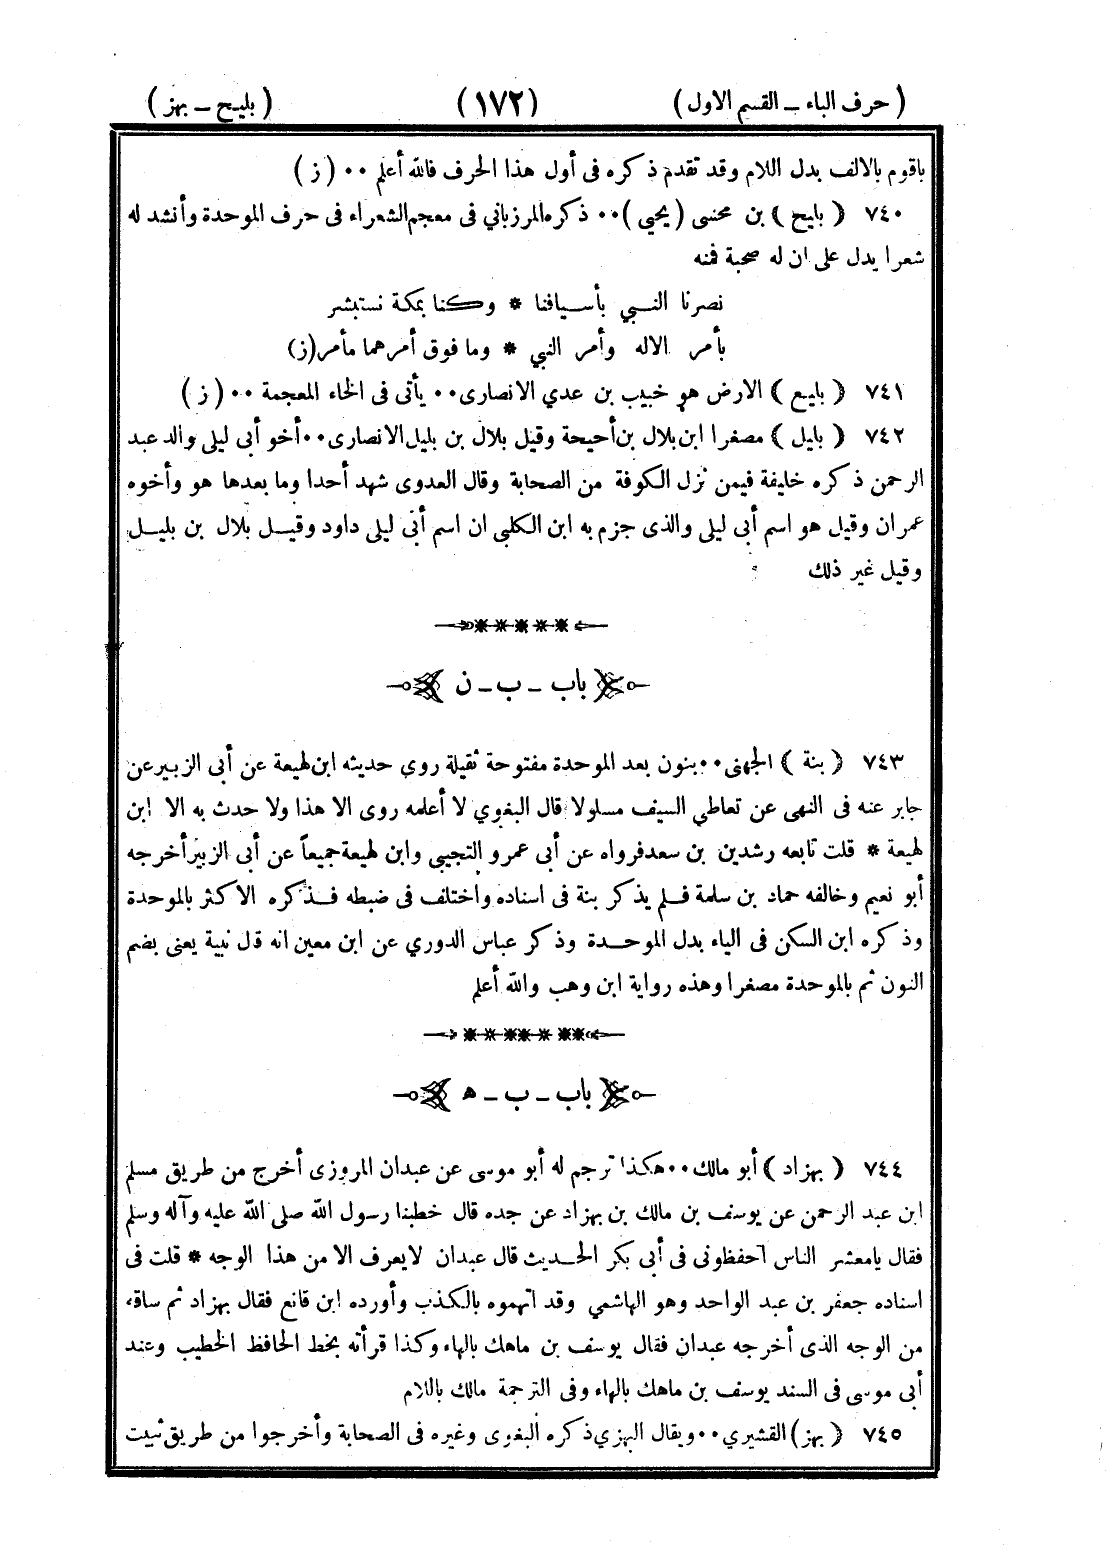 ( حرف الباء ــ القسم الاول ) (١٧٢) ( بليح ــ بهز )
باقوم بالالف بدل اللام وقد تقدم ذكره فى أول هذا الحرف فالله أعلم ٠٠ ( ز )
٧٤٠ ( بليح ) بن محشى ( يحيى ) ٠٠ ذكره المرزباني فى معجم الشعراء فى حرف الموحدة وأنشد له
شعرا يدل على ان له صحبة فمنه
نصرنا النبي بأسيافنا * وكنا بمكة نستبشر
بأمر الاله وأمر النبي * وما فوق أمرهما مأمر (ز)
٧٤١ ( بليع ) الارض هو خبيب بن عدي الانصارى ٠٠ يأتى فى الخاء المعجمة ٠٠ ( ز )
٧٤٢ ( بليل ) مصغرا ابن بلال بن أحيحة وقيل بلال بن بليل الانصارى ٠٠ أخو أبي ليلى والد عبد
الرحمن ذكره خليفة فيمن نزل الكوفة من الصحابة وقال العدوى شهد أحدا وما بعدها هو وأخوه
عمران وقيل هو اسم أبي ليلى والذى جزم به ابن الكلبي ان اسم أبي ليلى داود وقيل بلال بن بليل
وقيل غير ذلك
باب ـ ب ـ ن
٧٤٣ ( بنة ) الجهنى ٠٠ بنون بعد الموحدة مفتوحة ثقيلة روي حديثه ابن لهيعة عن أبي الزبير عن
جابر عنه فى النهى عن تعاطي السيف مسلولا قال البغوي لا أعلمه روى الا هذا ولا حدث به الا ابن
لهيعة * قلت تابعه رشدين بن سعد فرواه عن أبي عمرو التجيبي وابن لهيعة جميعاً عن أبي الزبير أخرجه
أبو نعيم وخالفه حماد بن سلمة فلم يذكر بنة فى اسناده واختلف فى ضبطه فذكره الاكثر بالموحدة
وذكره ابن السكن فى الياء بدل الموحدة وذكر عباس الدوري عن ابن معين انه قل نبية يعنى بضم
النون ثم بالموحدة مصغرا وهذه رواية ابن وهب والله أعلم
باب ـ ب ـ ه
٧٤٤ ( بهزاد ) أبو مالك ٠٠ هكذا ترجم له أبو موسى عن عبدان المروزى أخرج من طريق مسلم
ابن عبد الرحمن عن يوسف بن مالك بن بهزاد عن جده قال خطبنا رسول الله صلى الله عليه وآله وسلم
فقال يامعشر الناس احفظونى فى أبي بكر الحديث قال عبدان لايعرف الا من هذا الوجه * قلت فى
اسناده جعفر بن عبد الواحد وهو الهاشمي وقد اتهموه بالكذب وأورده ابن قانع فقال بهزاد ثم ساقه
من الوجه الذى أخرجه عبدان فقال يوسف بن ماهك بالهاء وكذا قرأته بخط الحافظ الخطيب وعند
أبى موسى فى السند يوسف بن ماهك بالهاء وفى الترجمة مالك باللام
٧٤٥ ( بهز ) القشيري ٠٠ ويقال البهزي ذكره البغوى وغيره فى الصحابة وأخرجوا من طريق ثبيت